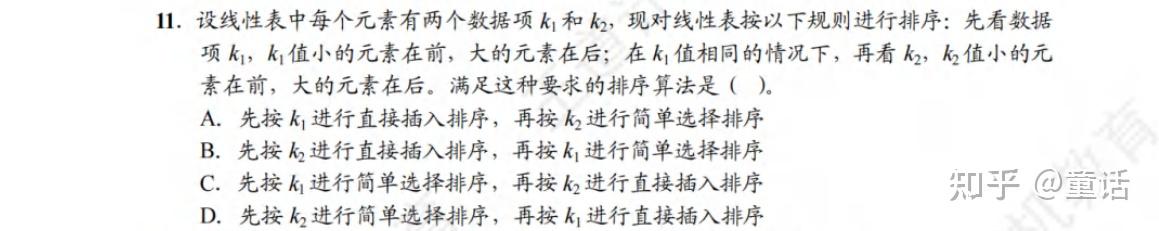 11. 设线性表中每个元素有两个数据项 k₁ 和 k₂，现对线性表按以下规则进行排序：先看数据
项 k₁，k₁ 值小的元素在前，大的元素在后；在 k₁ 值相同的情况下，再看 k₂，k₂ 值小的元
素在前，大的元素在后。满足这种要求的排序算法是（ ）。
A. 先按 k₁ 进行直接插入排序，再按 k₂ 进行简单选择排序
B. 先按 k₂ 进行直接插入排序，再按 k₁ 进行简单选择排序
C. 先按 k₁ 进行简单选择排序，再按 k₂ 进行直接插入排序
D. 先按 k₂ 进行简单选择排序，再按 k₁ 进行直接插入排序
知乎 @童话
机教育